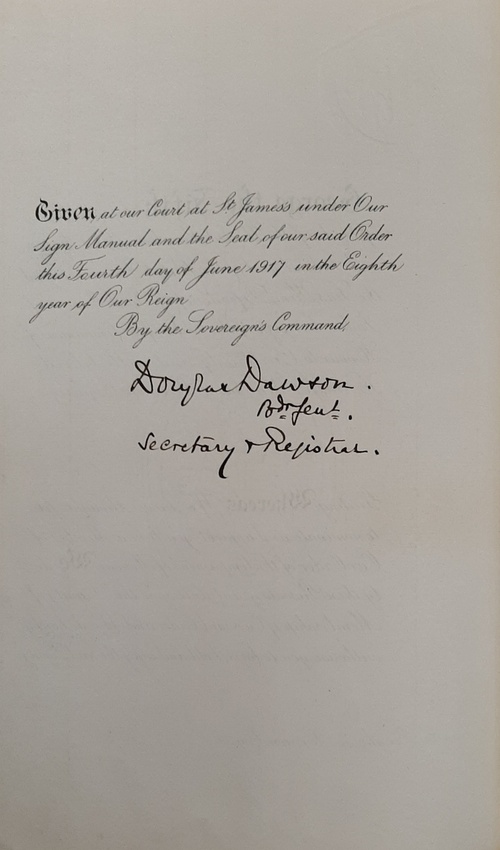 Given at our Court at St James's under Our
Sign Manual and the Seal of our said Order
this Fourth day of June 1917 in the Eighth
year of Our Reign
By the Sovereign's Command,
Douglas Dawson.
Br Genl.
Secretary & Registrar.